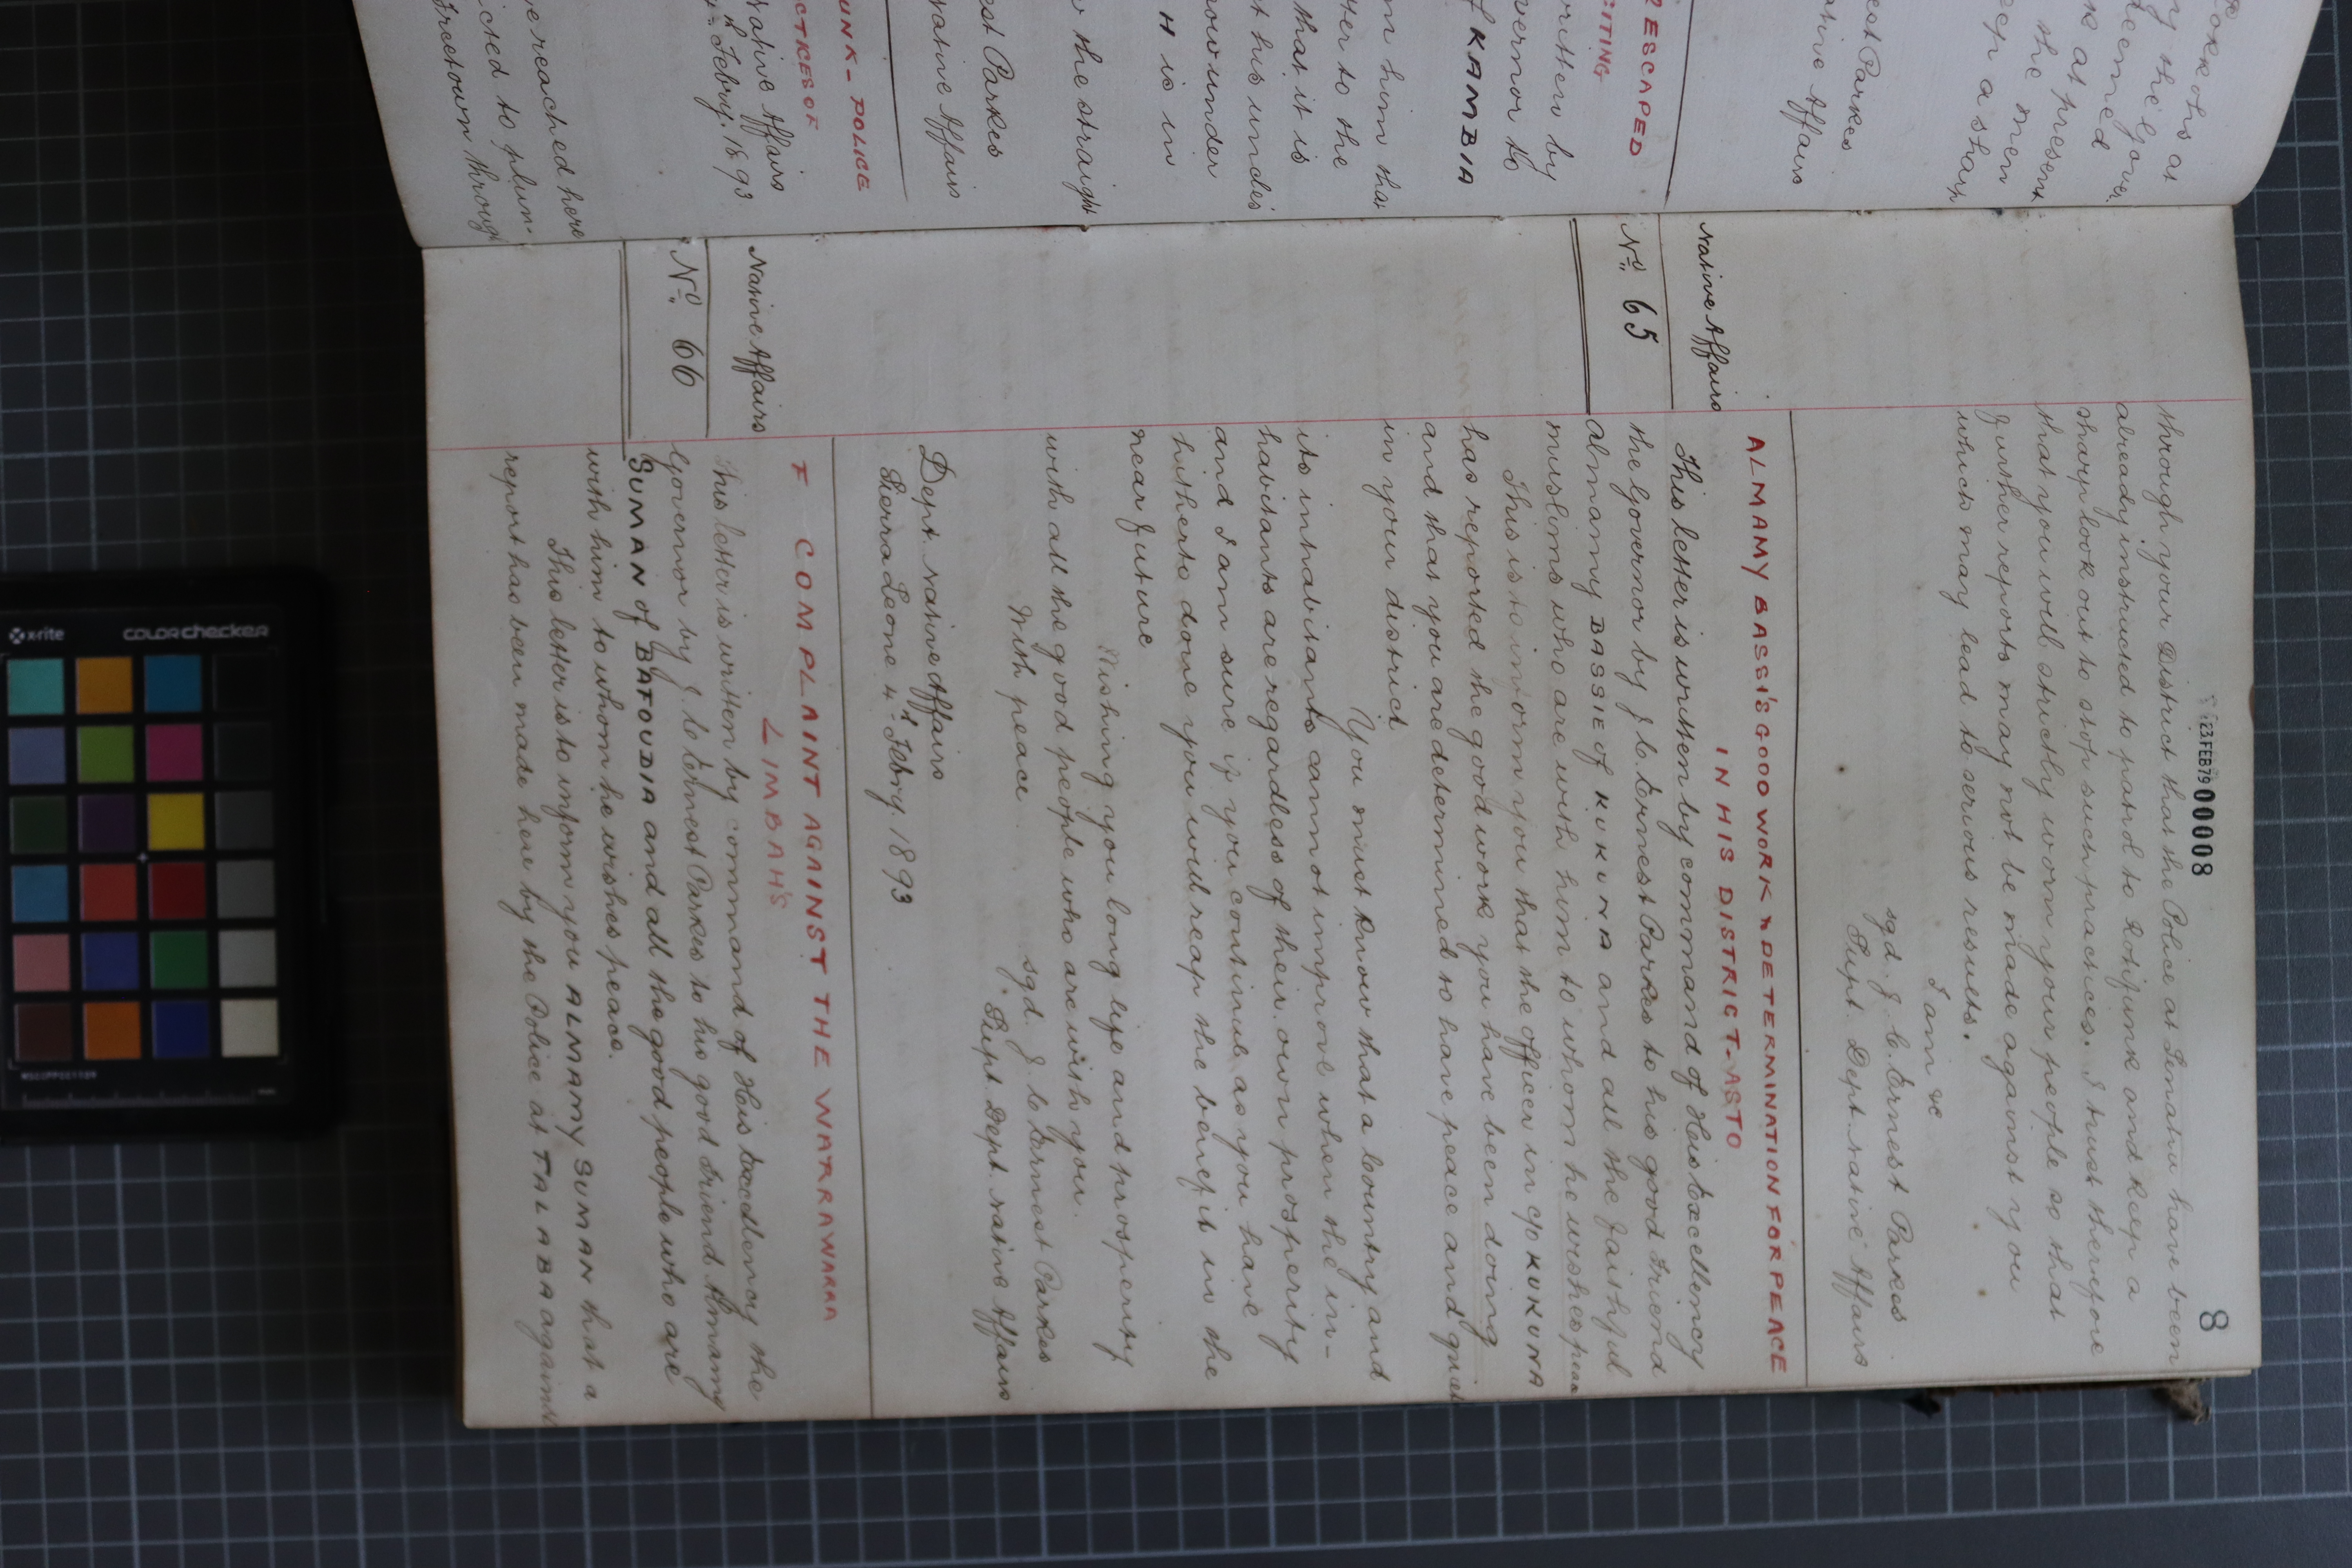 8
23FEB79 00008
through your District that the Police at Simatu have been
already instructed to patrol to Rotifunk and keep a
sharp look out to stop such practices. I trust therefore
that you will strictly warn your people so that
further reports may not be made against you
which may lead to serious results.
I am &c
sgd J. C. Ernest Parkes
Supt. Dept. Native Affairs
ALMAMY BASSI'S GOOD WORK & DETERMINATION FOR PEACE
IN HIS DISTRICT-ASTO
Native Affairs
No. 65
This letter is written by command of His Excellency
the Governor by J. C. Ernest Parkes to his good Friend
Almamy BASSIE of KUKUNA and all the faithful
muslims who are with him to whom he wishes peace
This is to inform you that the officer in c/o KUKUNA
has reported the good work you have been doing
and that you are determined to have peace and quiet
in your district
You must know that a Country and
its inhabitants cannot improve when the in-
habitants are regardless of their own prosperity
and I am sure if you continue as you have
hitherto done you will reap the benefit in the
near future
Wishing you long life and prosperity
with all the good people who are with you.
With peace
sgd. J. C. Ernest Parkes
Supt. Dept. Native Affairs
Dept. Native Affairs
Sierra Leone 4th Febry. 1893
F COMPLAINT AGAINST THE WARRAWARRA
LIMBAH'S
Native Affairs
No. 66
This letter is written by command of His Excellency the
Governor by J. C. Ernest Parkes to his good Friend Almamy
SUMAN of BAFOUDIA and all the good people who are
with him to whom he wishes peace.
This letter is to inform you ALMAMY SUMAN that a
report has been made here by the Police at TALABA against
at
by the Gover
deemed
k at present
the men
eep a sharp
est Parkes
ative Affairs
R ESCAPED
CITING
written by
vernor to
f KAMBIA
m him that
her to the
that it is
t his under
H is in
the straight
est Parkes
ative Affairs
UNK-POLICE
CTICES OF
Native Affairs
th Febuy. 1893
ve reached here
icted to plun-
Freetown through
x-rite
colorchecker